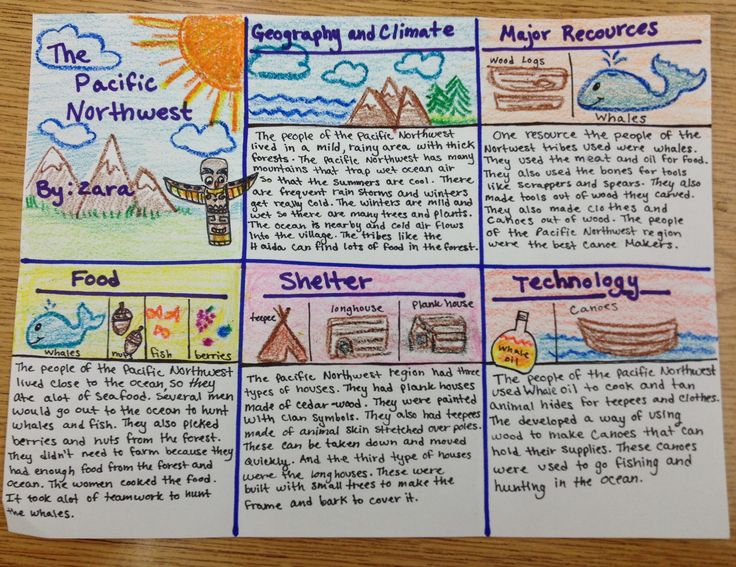 The
Pacific
Northwest
By: Zara
Geography and Climate
The people of the Pacific Northwest
lived in a mild, rainy area with thick
forests. The Pacific Northwest has many
mountains that trap wet ocean air
so that the summers are cool. There
are frequent rain storms and winters
get really cold. The winters are mild and
wet so there are many trees and plants.
The ocean is nearby and cold air flows
into the village. The tribes like the
Haida can find lots of food in the forest.
Major Recources
Wood Logs
Whales
One resource the people of the
Nortwest tribes used were whales.
They used the meat and oil for food.
They also used the bones for tools
like scrappers and spears. They also
made tools out of wood they carved.
They also made clothes and
canoes out of wood. The people
of the Pacific Northwest region
were the best canoe makers.
Food
whales
nuts
fish
berries
The people of the Pacific Northwest
lived close to the ocean, so they
ate alot of seafood. Several men
would go out to the ocean to hunt
whales and fish. They also picked
berries and nuts from the forest.
They didn't need to farm because they
had enough food from the forest and
ocean. The women cooked the food.
It took alot of teamwork to hunt
the whales.
Shelter
teepee
longhouse
Plank house
The Pacific Northwest region had three
types of houses. They had plank houses
made of cedar-wood. They were painted
with clan symbols. They also had teepees
made of animal skin stretched over poles.
These can be taken down and moved
quickly. And the third type of houses
were the longhouses. These were
built with small trees to make the
frame and bark to cover it.
Technology
whale
oil
Canoes
The people of the Pacific Northwest
used Whale oil to cook and tan
animal hides for teepees and clothes.
The developed a way of using
wood to make canoes that can
hold their supplies. These canoes
were used to go fishing and
hunting in the ocean.